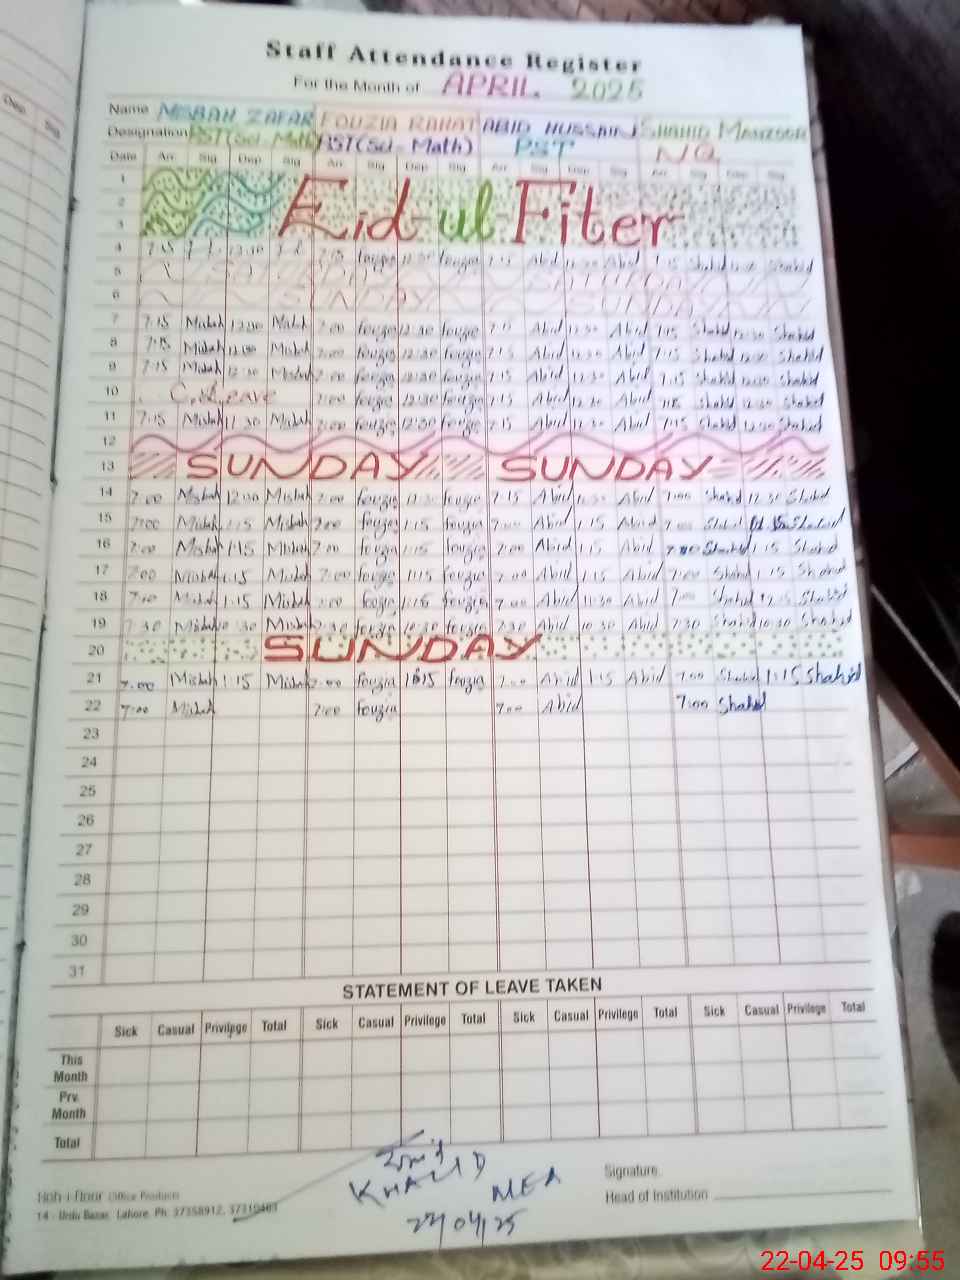 Dep Sig
Staff Attendance Register
For the Month of APRIL 2025
Name MISBAH ZAFAR FOUZIA RAHAT ABID HUSSAIN SHAHID MANZOOR
Designation PST(Sci-Math) PST(Sci-Math) PST NQ
Date Arr. Sig Dep Sig Arr. Sig Dep Sig Arr. Sig Dep Sig Arr. Sig Dep Sig
1
2 Eid ul Fiter
3
4 7:15 Fouzia Fouzia 7:15 Abid Abid Shahid Shahid
5 SATURDAY SATURDAY
6 SUNDAY SUNDAY
7 7:15 Misbah 12:30 Misbah 7:00 Fouzia 12:30 Fouzia 7:15 Abid 12:30 Abid 7:15 Shahid 12:30 Shahid
8 7:15 Misbah Misbah 7:00 Fouzia 12:30 Fouzia 7:15 Abid 12:30 Abid 7:15 Shahid 12:30 Shahid
9 7:15 Misbah 12:30 Misbah 7:00 Fouzia 12:30 Fouzia 7:15 Abid 12:30 Abid 7:15 Shahid 12:30 Shahid
10 C.Leave 7:00 Fouzia 12:30 Fouzia 7:15 Abid 12:30 Abid Shahid 12:30 Shahid
11 7:15 Misbah 11:30 Misbah 7:00 Fouzia 12:30 Fouzia 7:15 Abid 12:30 Abid 7:15 Shahid 12:30 Shahid
12
13 SUNDAY SUNDAY
14 7:00 Misbah 12:00 Misbah 7:00 Fouzia 12:30 Fouzia 7:15 Abid Abid 7:00 Shahid 12:30 Shahid
15 7:00 Misbah 1:15 Misbah 7:00 Fouzia 1:15 Fouzia 7:00 Abid 1:15 Abid 7:00 Shahid Shahid
16 7:00 Misbah 1:15 Misbah 7:00 Fouzia 1:15 Fouzia 7:00 Abid 1:15 Abid Shahid 1:15 Shahid
17 7:00 Misbah 1:15 Misbah 7:00 Fouzia 1:15 Fouzia 7:00 Abid 1:15 Abid 7:00 Shahid 1:15 Shahid
18 7:00 Misbah 1:15 Misbah 7:00 Fouzia 1:15 Fouzia 7:00 Abid 11:30 Abid 7:00 Shahid Shahid
19 7:30 Misbah 10:30 Misbah 7:30 Fouzia 10:30 Fouzia 7:30 Abid 10:30 Abid 7:30 Shahid 10:30 Shahid
20 SUNDAY
21 7:00 Misbah 1:15 Misbah 7:00 Fouzia Fouzia 7:00 Abid 1:15 Abid 7:00 Shahid 1:15 Shahid
22 7:00 Misbah 7:00 Fouzia 7:00 Abid 7:00 Shahid
23
24
25
26
27
28
29
30
31
STATEMENT OF LEAVE TAKEN
Sick Casual Privilege Total Sick Casual Privilege Total Sick Casual Privilege Total Sick Casual Privilege Total
This Month
Prv. Month
Total
KHALID MEA
22/04/25
Signature
Head of Institution
Roh-i-Noor Office Products
14 - Urdu Bazar, Lahore. Ph: 37358912, 37310403
22-04-25 09:55